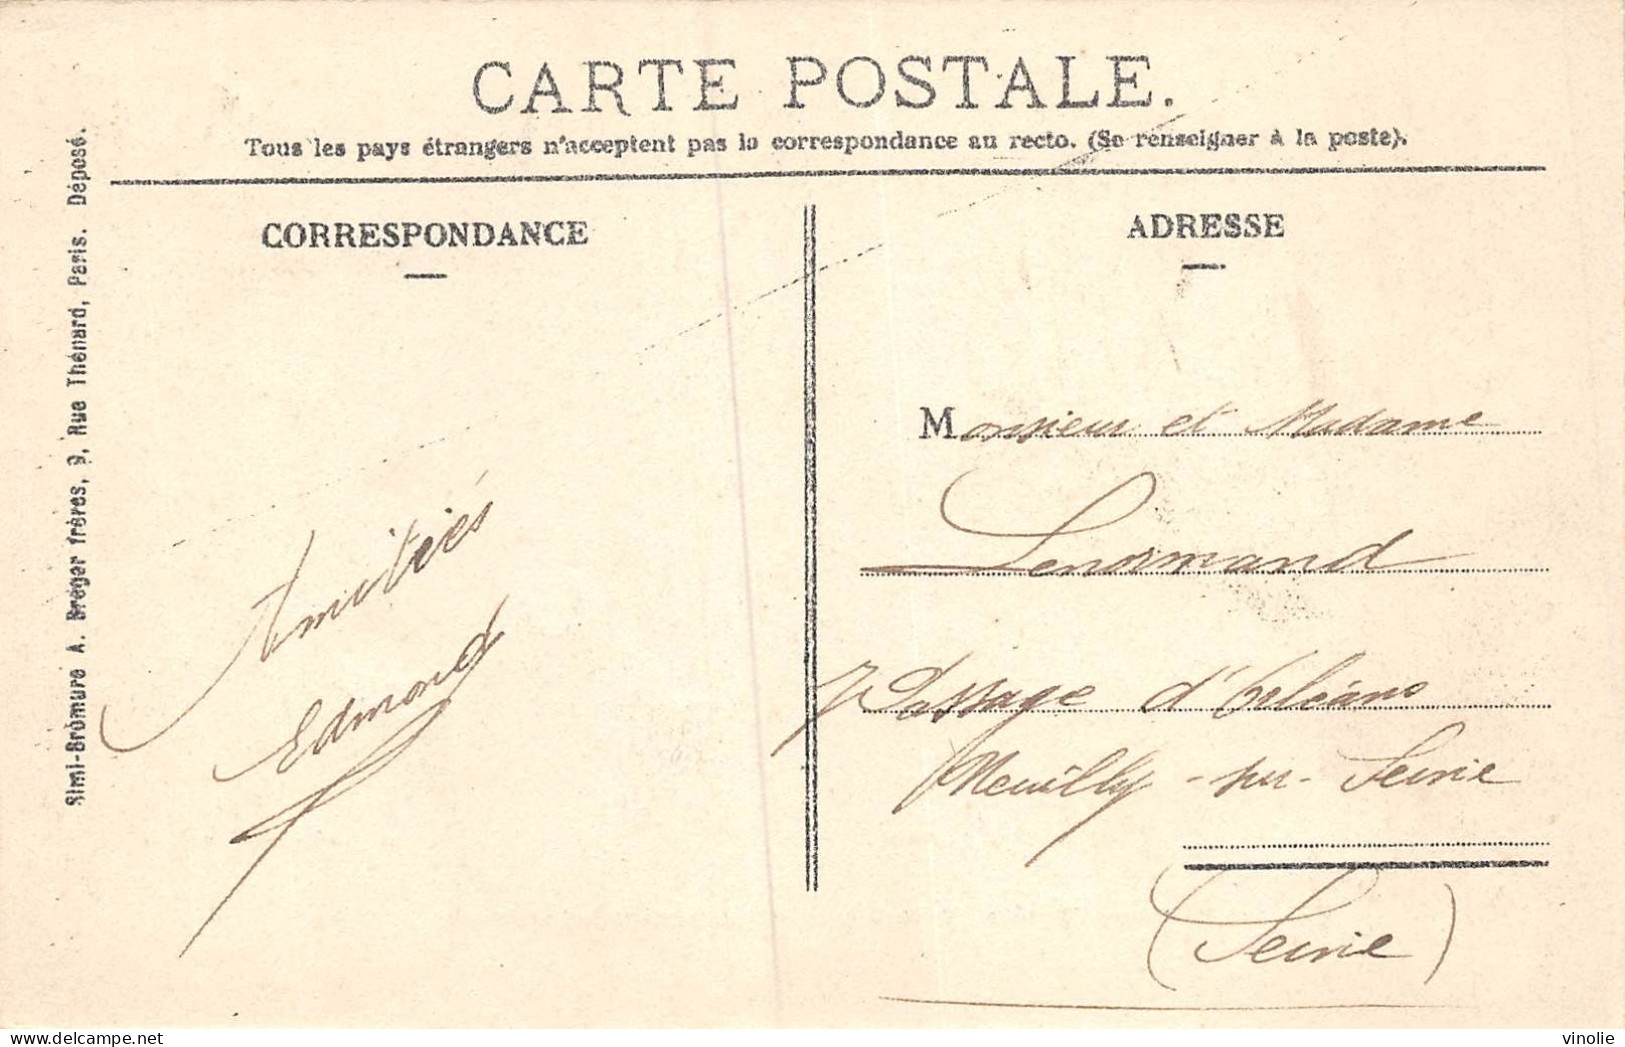 CARTE POSTALE.
Tous les pays étrangers n'acceptent pas la correspondance au recto. (Se renseigner à la poste).
Simi-Bromure A. Breger frères, 9, Rue Thénard, Paris. Déposé.
CORRESPONDANCE
Amitiés
Edmond
ADRESSE
Monsieur et Madame
Lenormand
7 Passage d'Orléans
Neuilly-sur-Seine
(Seine)
vinolie